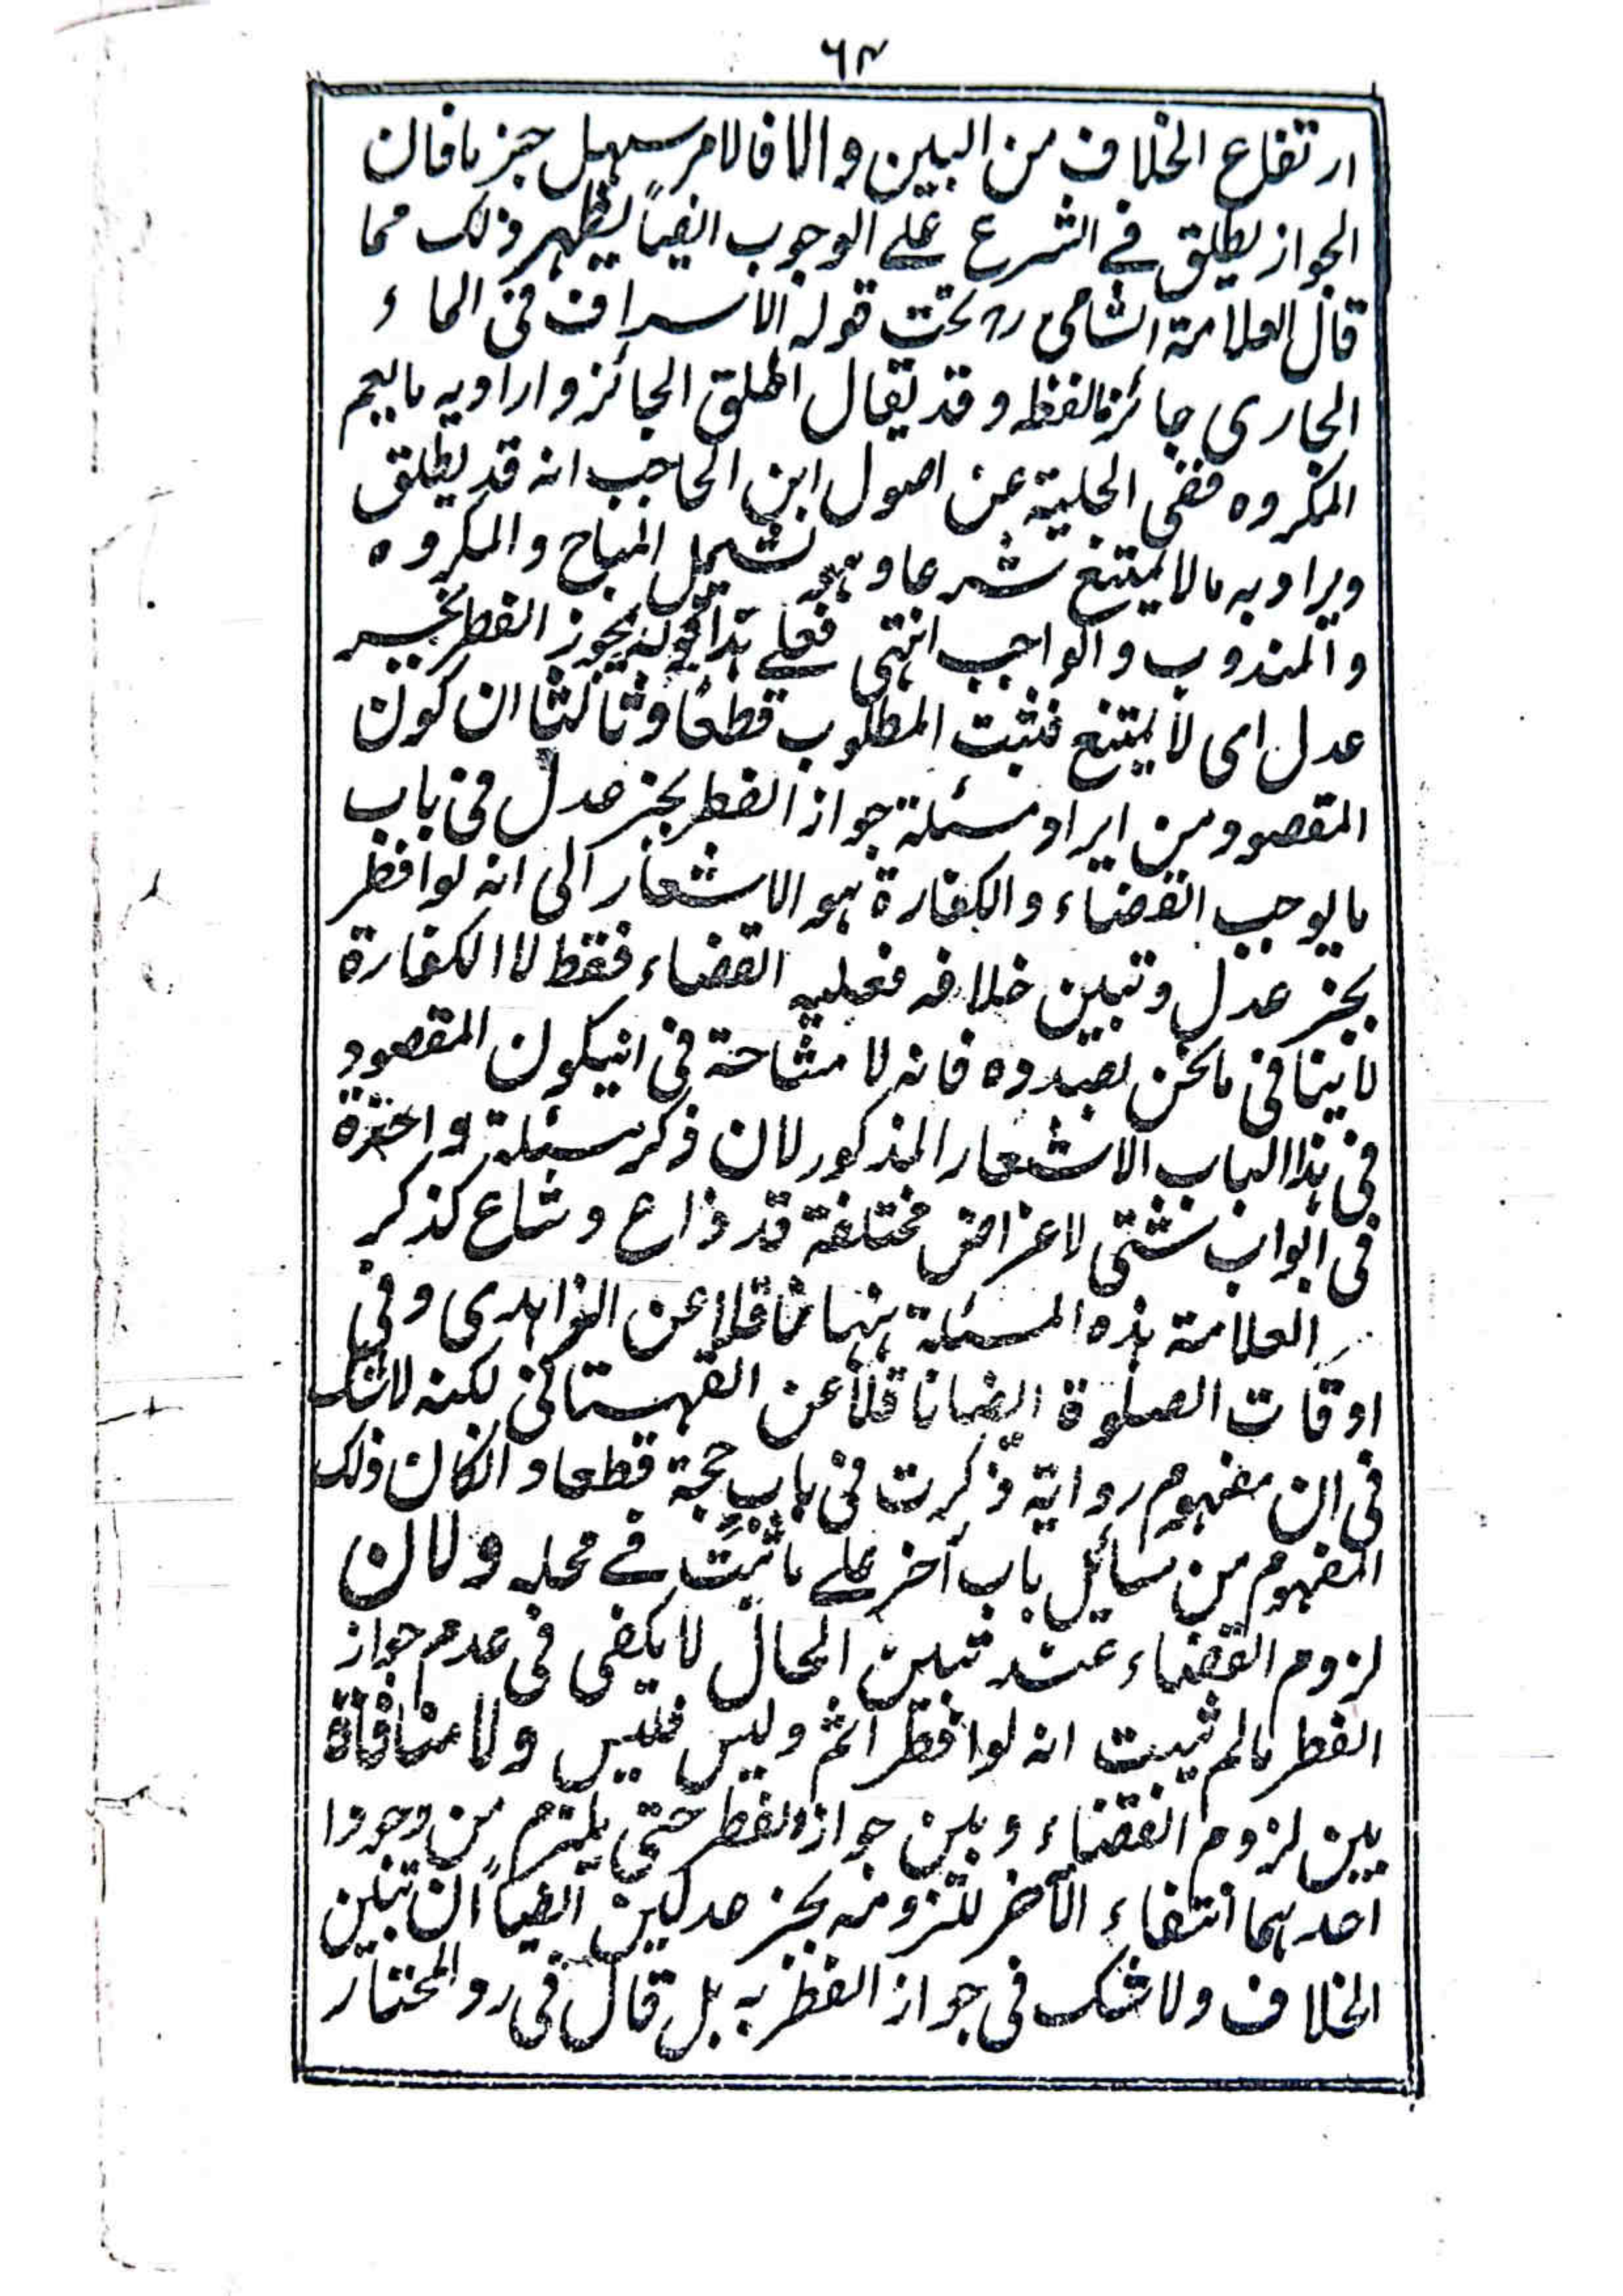 ٦٤
ارتفاع الخلاف من البين والا فالامر سهل جزما فان
الجواز يطلق فے الشرع علے الوجوب ايضاً يظهر ذلك مما
قال العلامة الشامى رح تحت قوله الاسراف فى الماء
الجارى جائز مالفظه وقد يقال اطلق الجائز واراد به ما يعم
المكروه ففى الحلية عن اصول ابن الحاجب انه قد يطلق
ويراد به مالا يمتنع شرعا وهو يشمل المباح والمكروه
والمندوب والواجب انتهى فعلے هذا قوله يجوز الفطر بخبر
عدل اى لا يمتنع فثبت المطلوب قطعا وثالثا ان كون
المقصود من ايراد مسئلة جواز الفطر بخبر عدل فى باب
ما يوجب القضاء والكفارة هو الاشعار الى انه لو افطر
بخبر عدل وتبين خلافه فعليه القضاء فقط لا الكفارة
لا ينافى ما نحن بصدده فانه لا مشاحة فى ان يكون المقصود
فى هذا الباب الاشعار المذكور لان ذكر مسئلة واحدة
فى ابواب شتى لاغراض مختلفة قد ذاع وشاع كذكر
العلامة هذه المسئلة ههنا ناقلا عن الزاهدى وفى
اوقات الصلوة ايضا ناقلا عن القهستانى لكنه لاشك
فى ان مفهوم رواية ذكرت فى باب حجة قطعا وانكان ذلك
المفهوم من مسائل باب آخر علے ما ثبت فے محله ولان
لزوم القضاء عند تبين الحال لا يكفى فى عدم جواز
الفطر مالم يثبت انه لو افطر اثم وليس فليس ولا منافاة
بين لزوم القضاء وبين جواز الفطر حتى يلتزم من وجود
احدهما انتفاء الآخر للزومه بخبر عدلين ايضاً ان تبين
الخلاف ولا شك فى جواز الفطر به بل قال فى رد المحتار